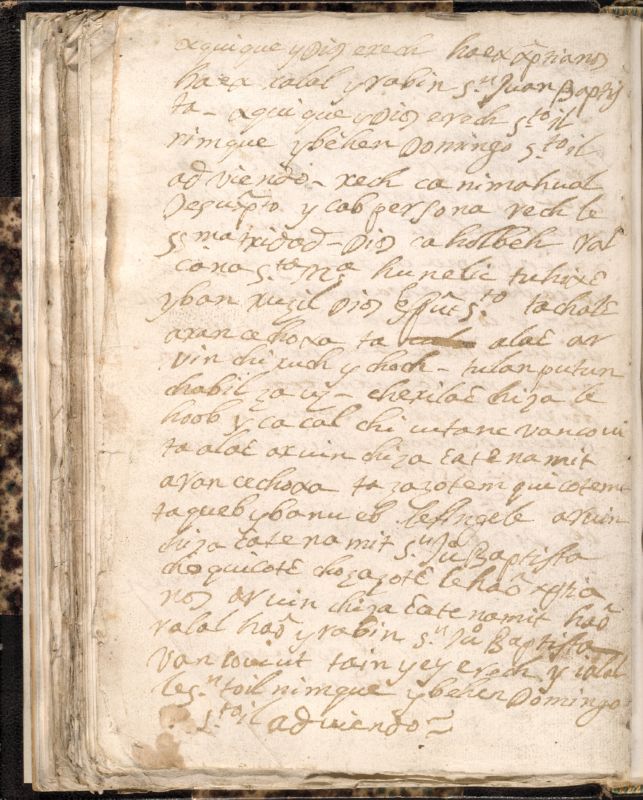 aquique y Dios erech haex xp̃tianos
haex ralal y rabin s.n Juan Baptis
ta - aquique y Dios erech s.to il
nimque y behen Domingo s.to il
adviendo - rech ca nimahual
Desu xp̃to y cab persona rech le
ss.ma trinidad - Dios caholbeh ral
cana s.ta m.a hunelic tuhixẽ
yban ruxil Dios esp̃u s.to ta chalẽ
aran cehoxa ta alaẽ ar
vin chi ruch y hoch - tulan putun
chabil
hoob y ca cal chi cutanc vancoui
ta alaẽ arvin chiza catenamit
aran cechoxa ta zazotem qui cotemi
taqueb ybanueb lesingele arvin
chiza catenamit s.n Ju.o Baptista
choquicotẽ chozazotẽ le haõ xp̃tia
nos arvin chiza catenamit haõ
ralal haõ y rabin s.n Ju.o Baptista
van couicut tain yey erech y ralal
le s.n toil nimque y behen Domingo
s.to il adviendo